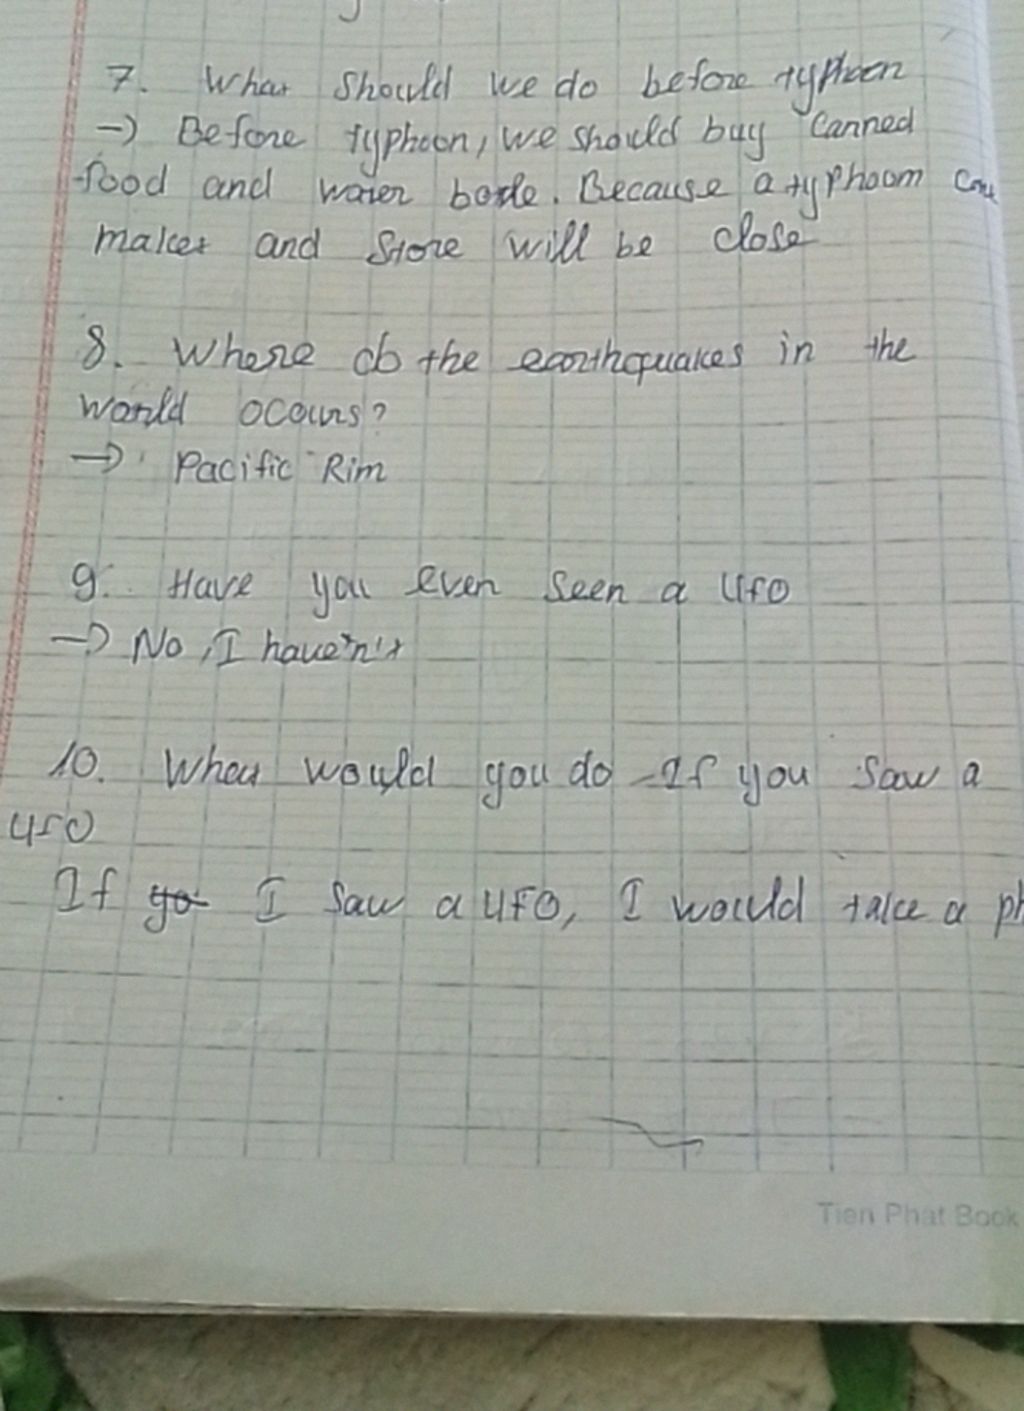 7. What should we do before typhoon
→ Before typhoon, we should buy canned
food and water bottle. Because a typhoom
market and store will be close
8. Where do the earthquakes in the
world ocours?
→ Pacific Rim
9. Have you ever seen a UFO
→ No, I haven't
10. What would you do If you saw a
UFO
If I saw a UFO, I would take a ph
Tien Phat Book